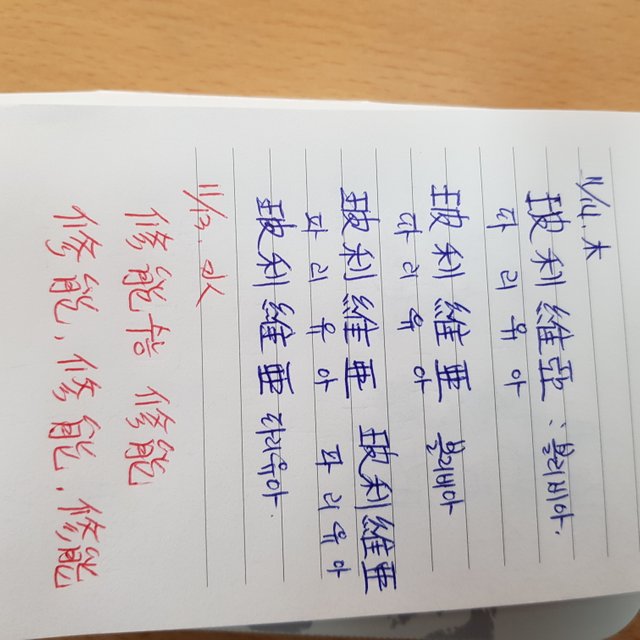 11/14. 木
玻利維亞 : 볼리비아.
파 리 유 아
玻利維亜 볼리비아
파 리 유 아
玻利維亜 玻利維亜
파 리 유 아 파 리 유 아
玻利維亜 파리유아.
11/13. 水
修能 修能
修能, 修能, 修能